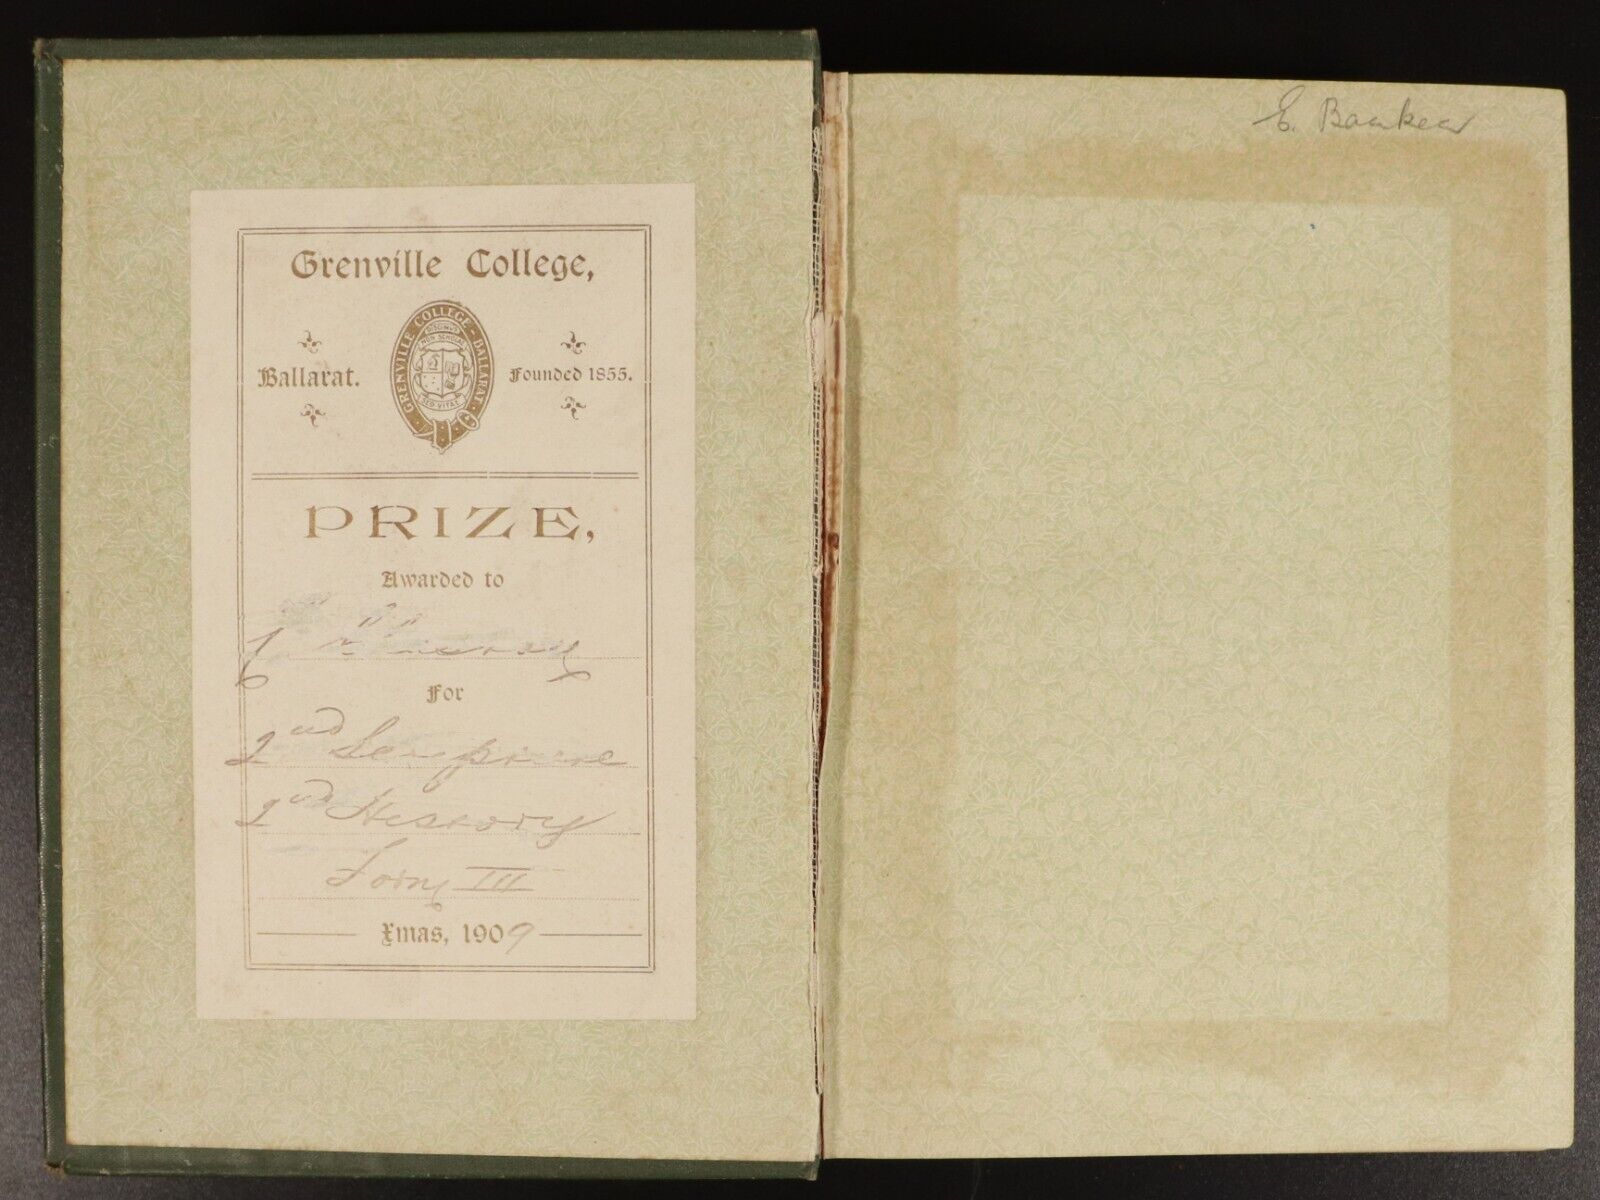 Grenville College,
GRENVILLE COLLEGE · BALLARAT
NON SCHOLÆ
SED VITAE
Ballarat.
Founded 1855.
PRIZE,
Awarded to
For
2nd
2nd History
Form III
Xmas, 1909
E.